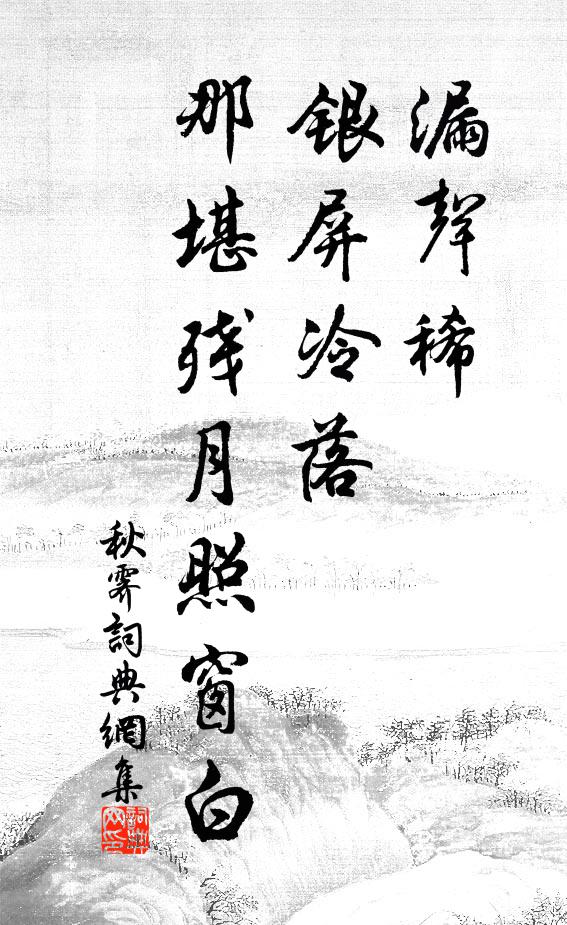 漏聲稀
銀屏冷落
那堪残月照窗白
秋霽詞典網集